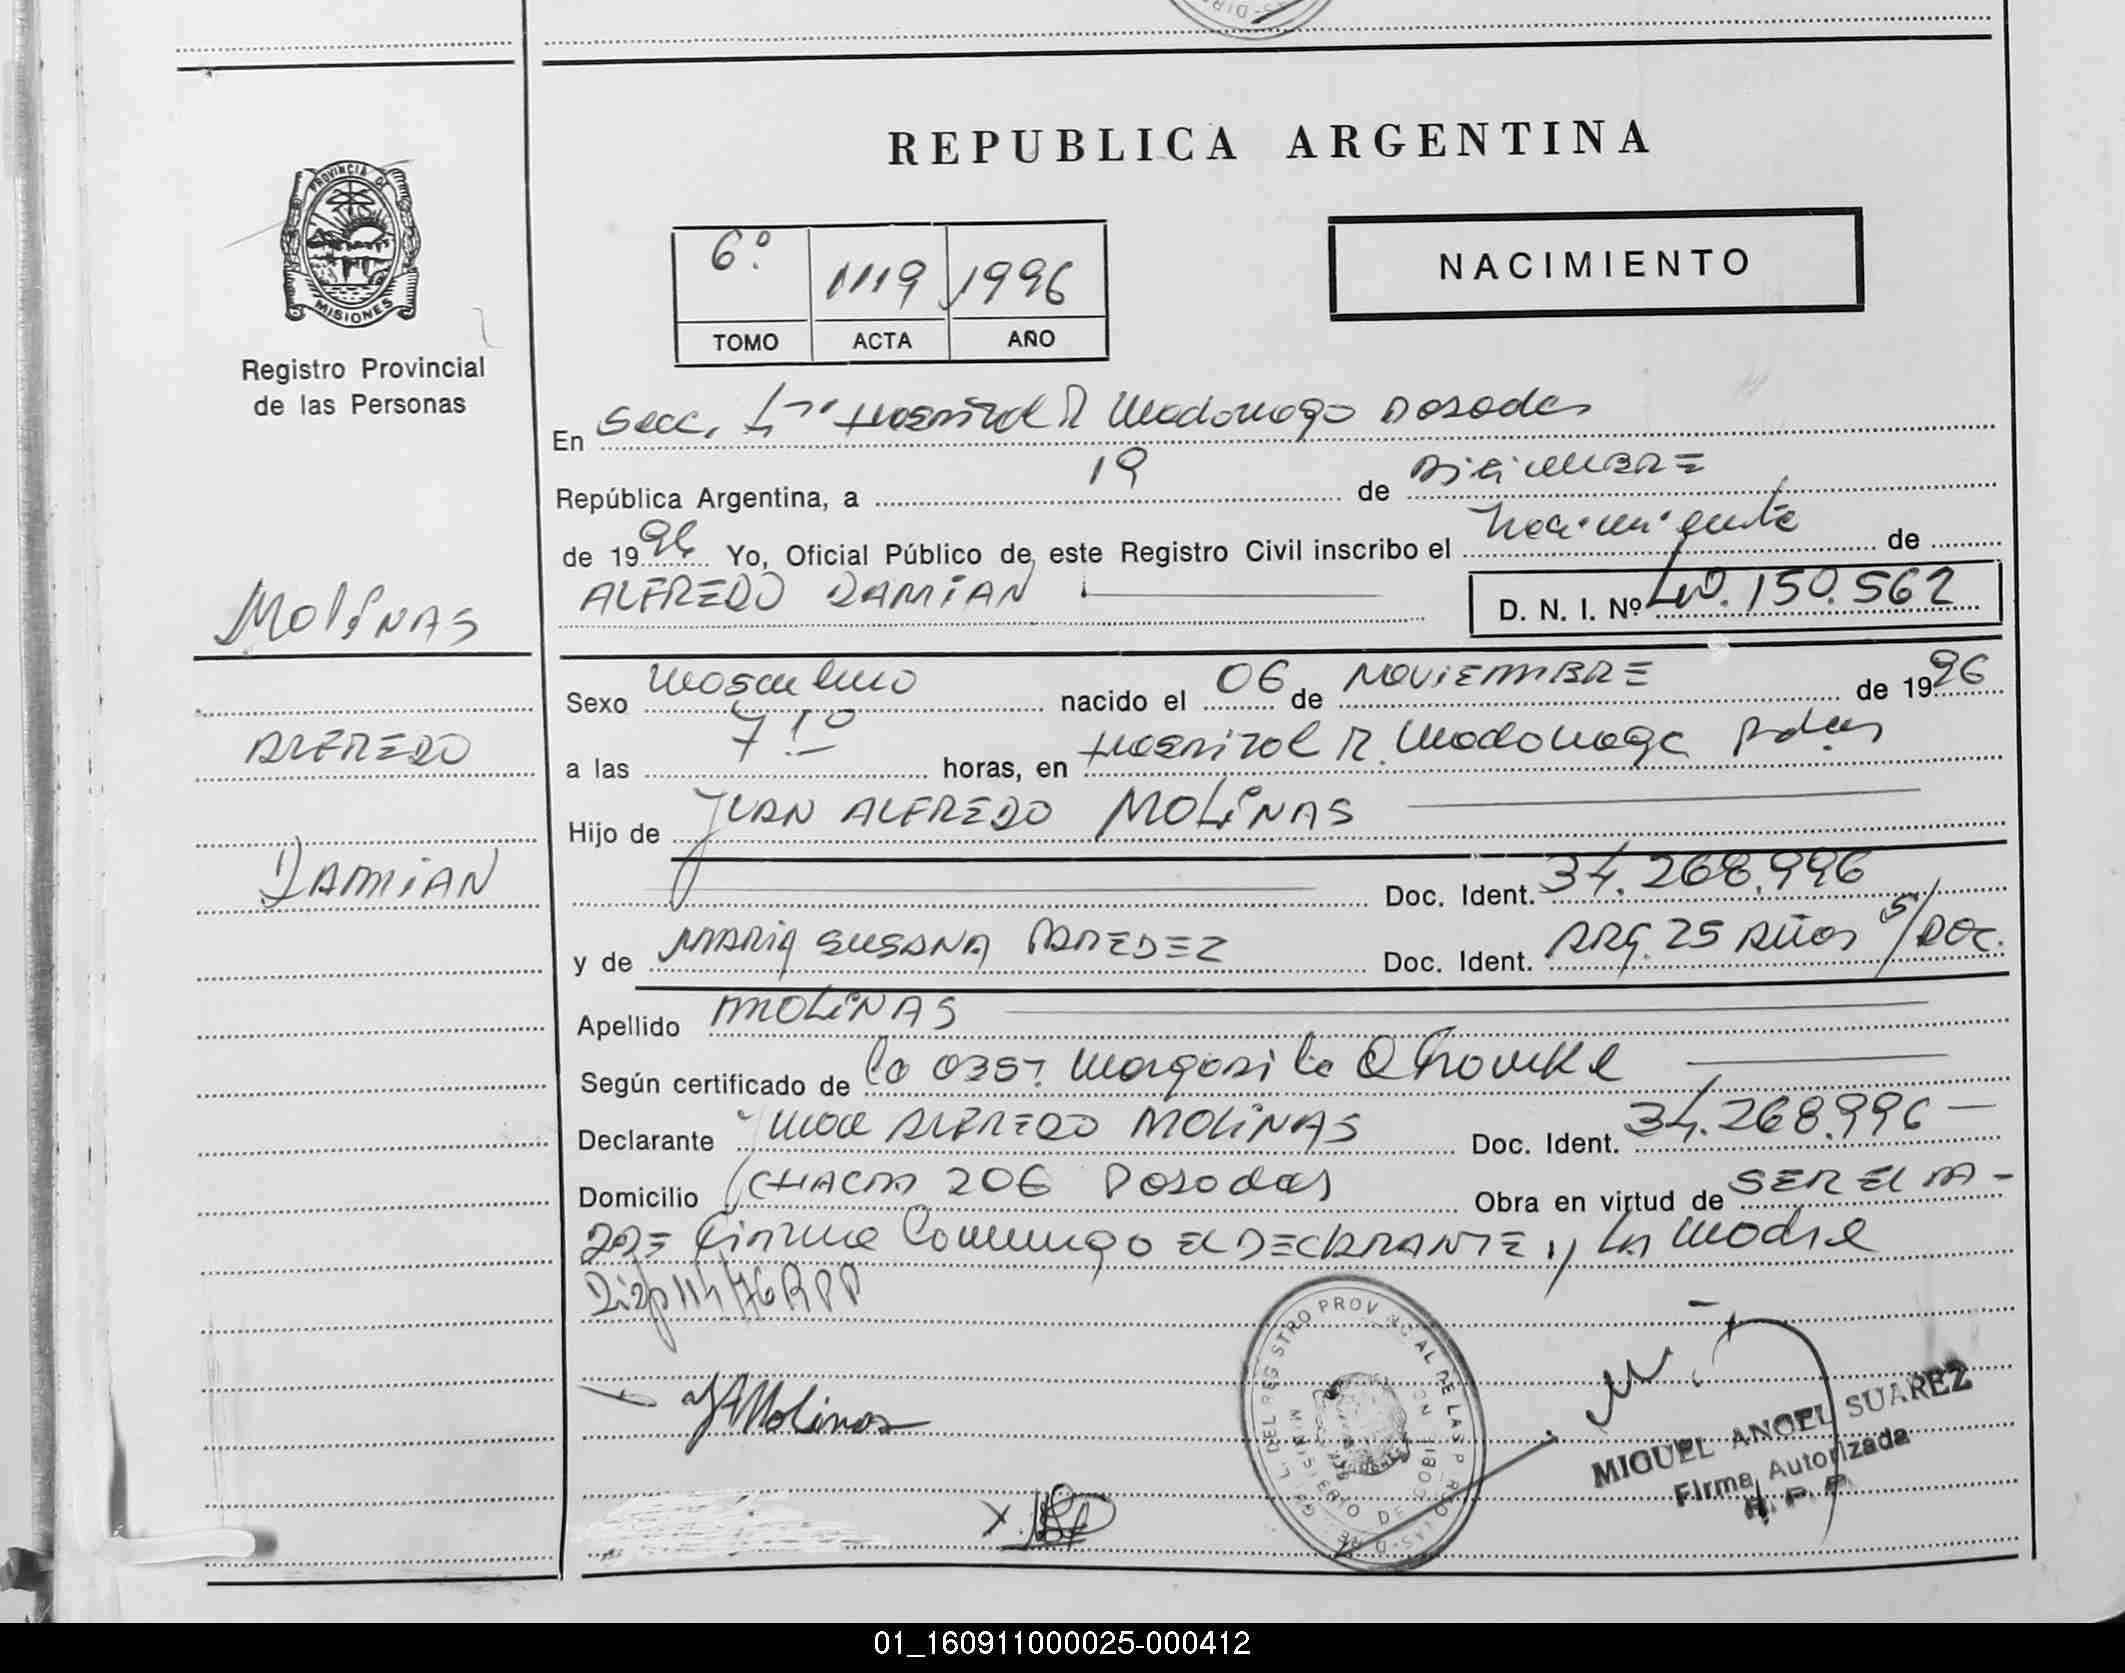 REPUBLICA ARGENTINA
PROVINCIA DE
MISIONES
Registro Provincial
de las Personas
6º 1119 1996
TOMO ACTA AÑO
NACIMIENTO
En Secc. Hospital R Madariaga Posadas
República Argentina, a 19 de Diciembre
de 1996 Yo, Oficial Público de este Registro Civil inscribo el Nacimiento de
ALFREDO DAMIAN
D. N. I. Nº 40.150.562
MOLINAS
ALFREDO
DAMIAN
Sexo Masculino nacido el 06 de NOVIEMBRE de 1996
a las 7 10 horas, en Hospital R. Madariaga Pdas
Hijo de JUAN ALFREDO MOLINAS
Doc. Ident. 34.268.996
y de MARIA SUSANA PAREDEZ Doc. Ident. ARG. 25 AÑOS S/DOC.
Apellido MOLINAS
Según certificado de la OBST. Margarita
Declarante Juan ALFREDO MOLINAS Doc. Ident. 34.268.996-
Domicilio CHACRA 206 Posadas Obra en virtud de SER EL PA-
DRE Firma Conmigo EL DECLARANTE y LA Madre
Disp 114/76 RPP
JAMolinas
MIGUEL ANGEL SUAREZ
Firma Autorizada
R. P. P.
01_160911000025-000412